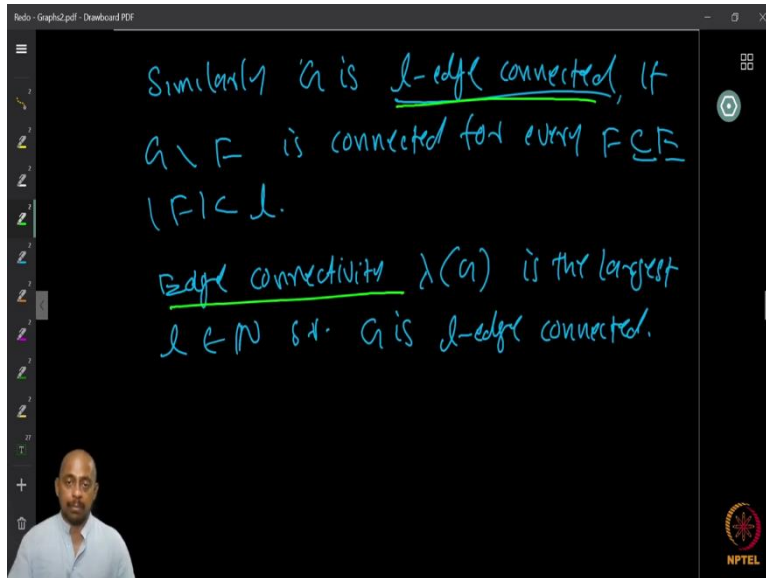 Redo - Graphs2.pdf - Drawboard PDF
Similarly G is l-edge connected, if
G \ F is connected for every F ⊆ E
|F| < l.
Edge connectivity λ(G) is the largest
l ∈ N s.t. G is l-edge connected.
NPTEL